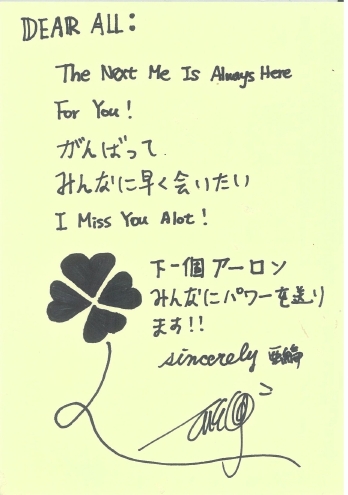 DEAR ALL:
The Next Me Is Always Here
For You!
がんばって
みんなに早く会いたい
I Miss You Alot!
下一個 アーロン
みんなにパワーを送り
ます!!
sincerely 亞綸